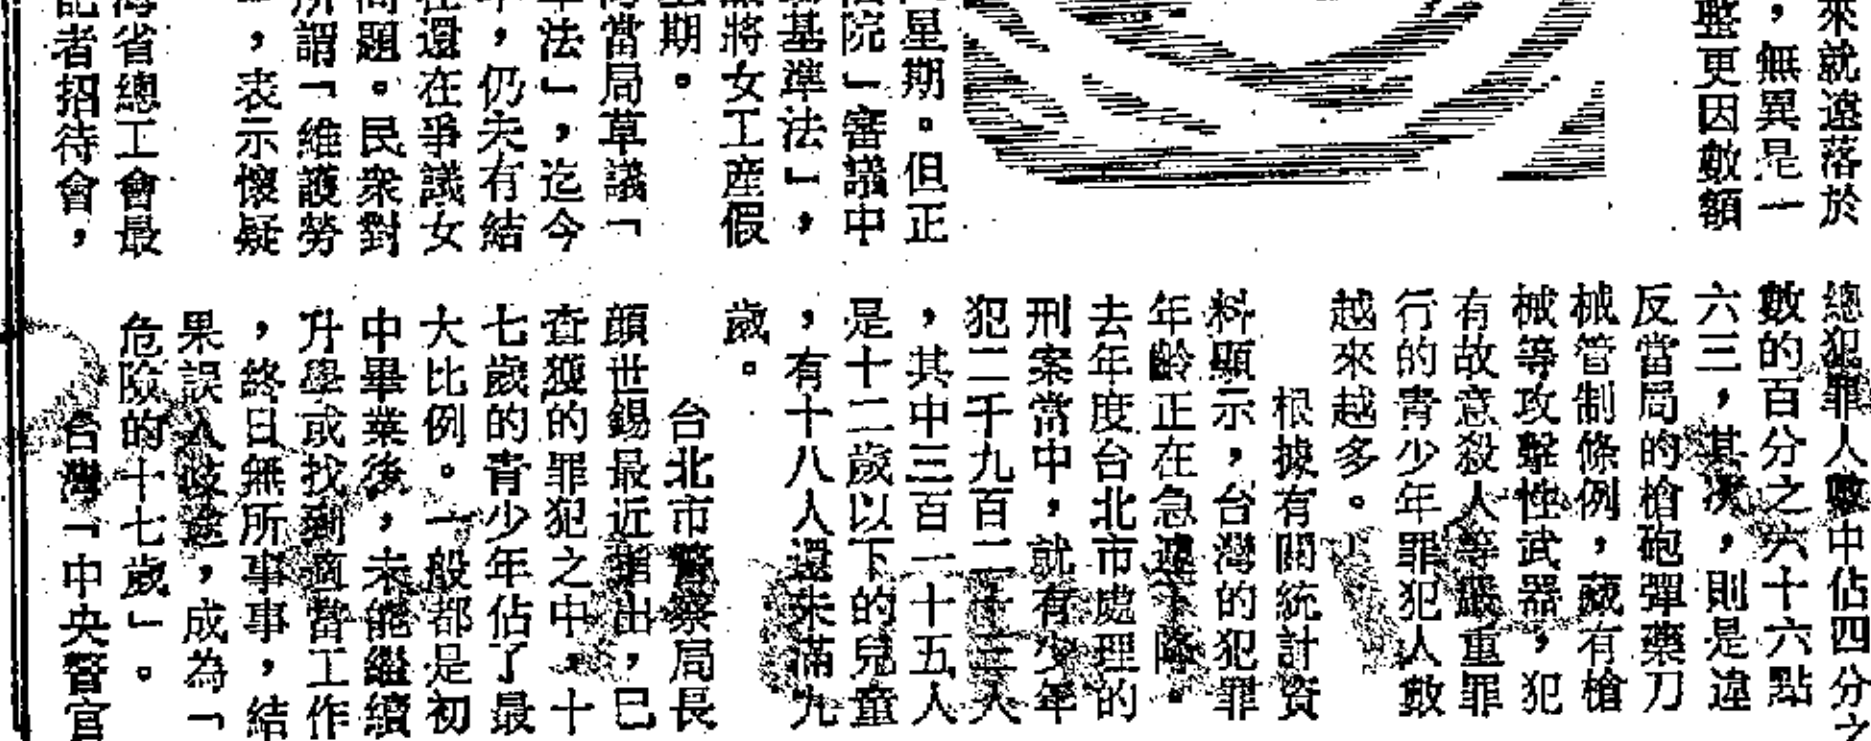 來就遠落於
，無異是一
整更因數額
星期。但正
院」審議中
基準法」，
將女工產假
期。
當局草議「
法」，迄今
，仍未有結
還在爭議女
問題。民衆對
所謂「維護勞
，表示懷疑
省總工會最
記者招待會，
總犯罪人數中佔四分之
數的百分之六十六點
六三，其次，則是違
反當局的槍砲彈藥刀
械管制條例，藏有槍
械等攻擊性武器，犯
有故意殺人等嚴重罪
行的青少年罪犯人數
越來越多。
根據有關統計資
料顯示，台灣的犯罪
年齡正在急遽下降。
去年度台北市處理的
刑案當中，就有少年
犯二千九百二十三人
，其中三百一十五人
是十二歲以下的兒童
，有十八人還未滿九
歲。
台北市警察局長
顏世錫最近指出，已
查獲的罪犯之中，十
七歲的青少年佔了最
大比例。一般都是初
中畢業後，未能繼續
升學或找到適當工作
，終日無所事事，結
果誤入歧途，成為「
危險的十七歲」。
台灣「中央警官